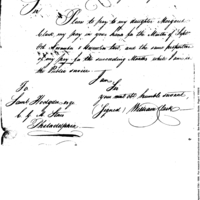 Sir,
Please to pay to my daughter Margaret
Clark, my pay in your hand for the Month of Septr
Octr November & December Inst, and the same proportion
of my pay for the succeeding Months while I am in
the Public service.
I am
Sir
your most obt humble servant,
Signed, William Clark
To
Saml Hodgdon esqr
C. G. M. Stores
Philadelphia